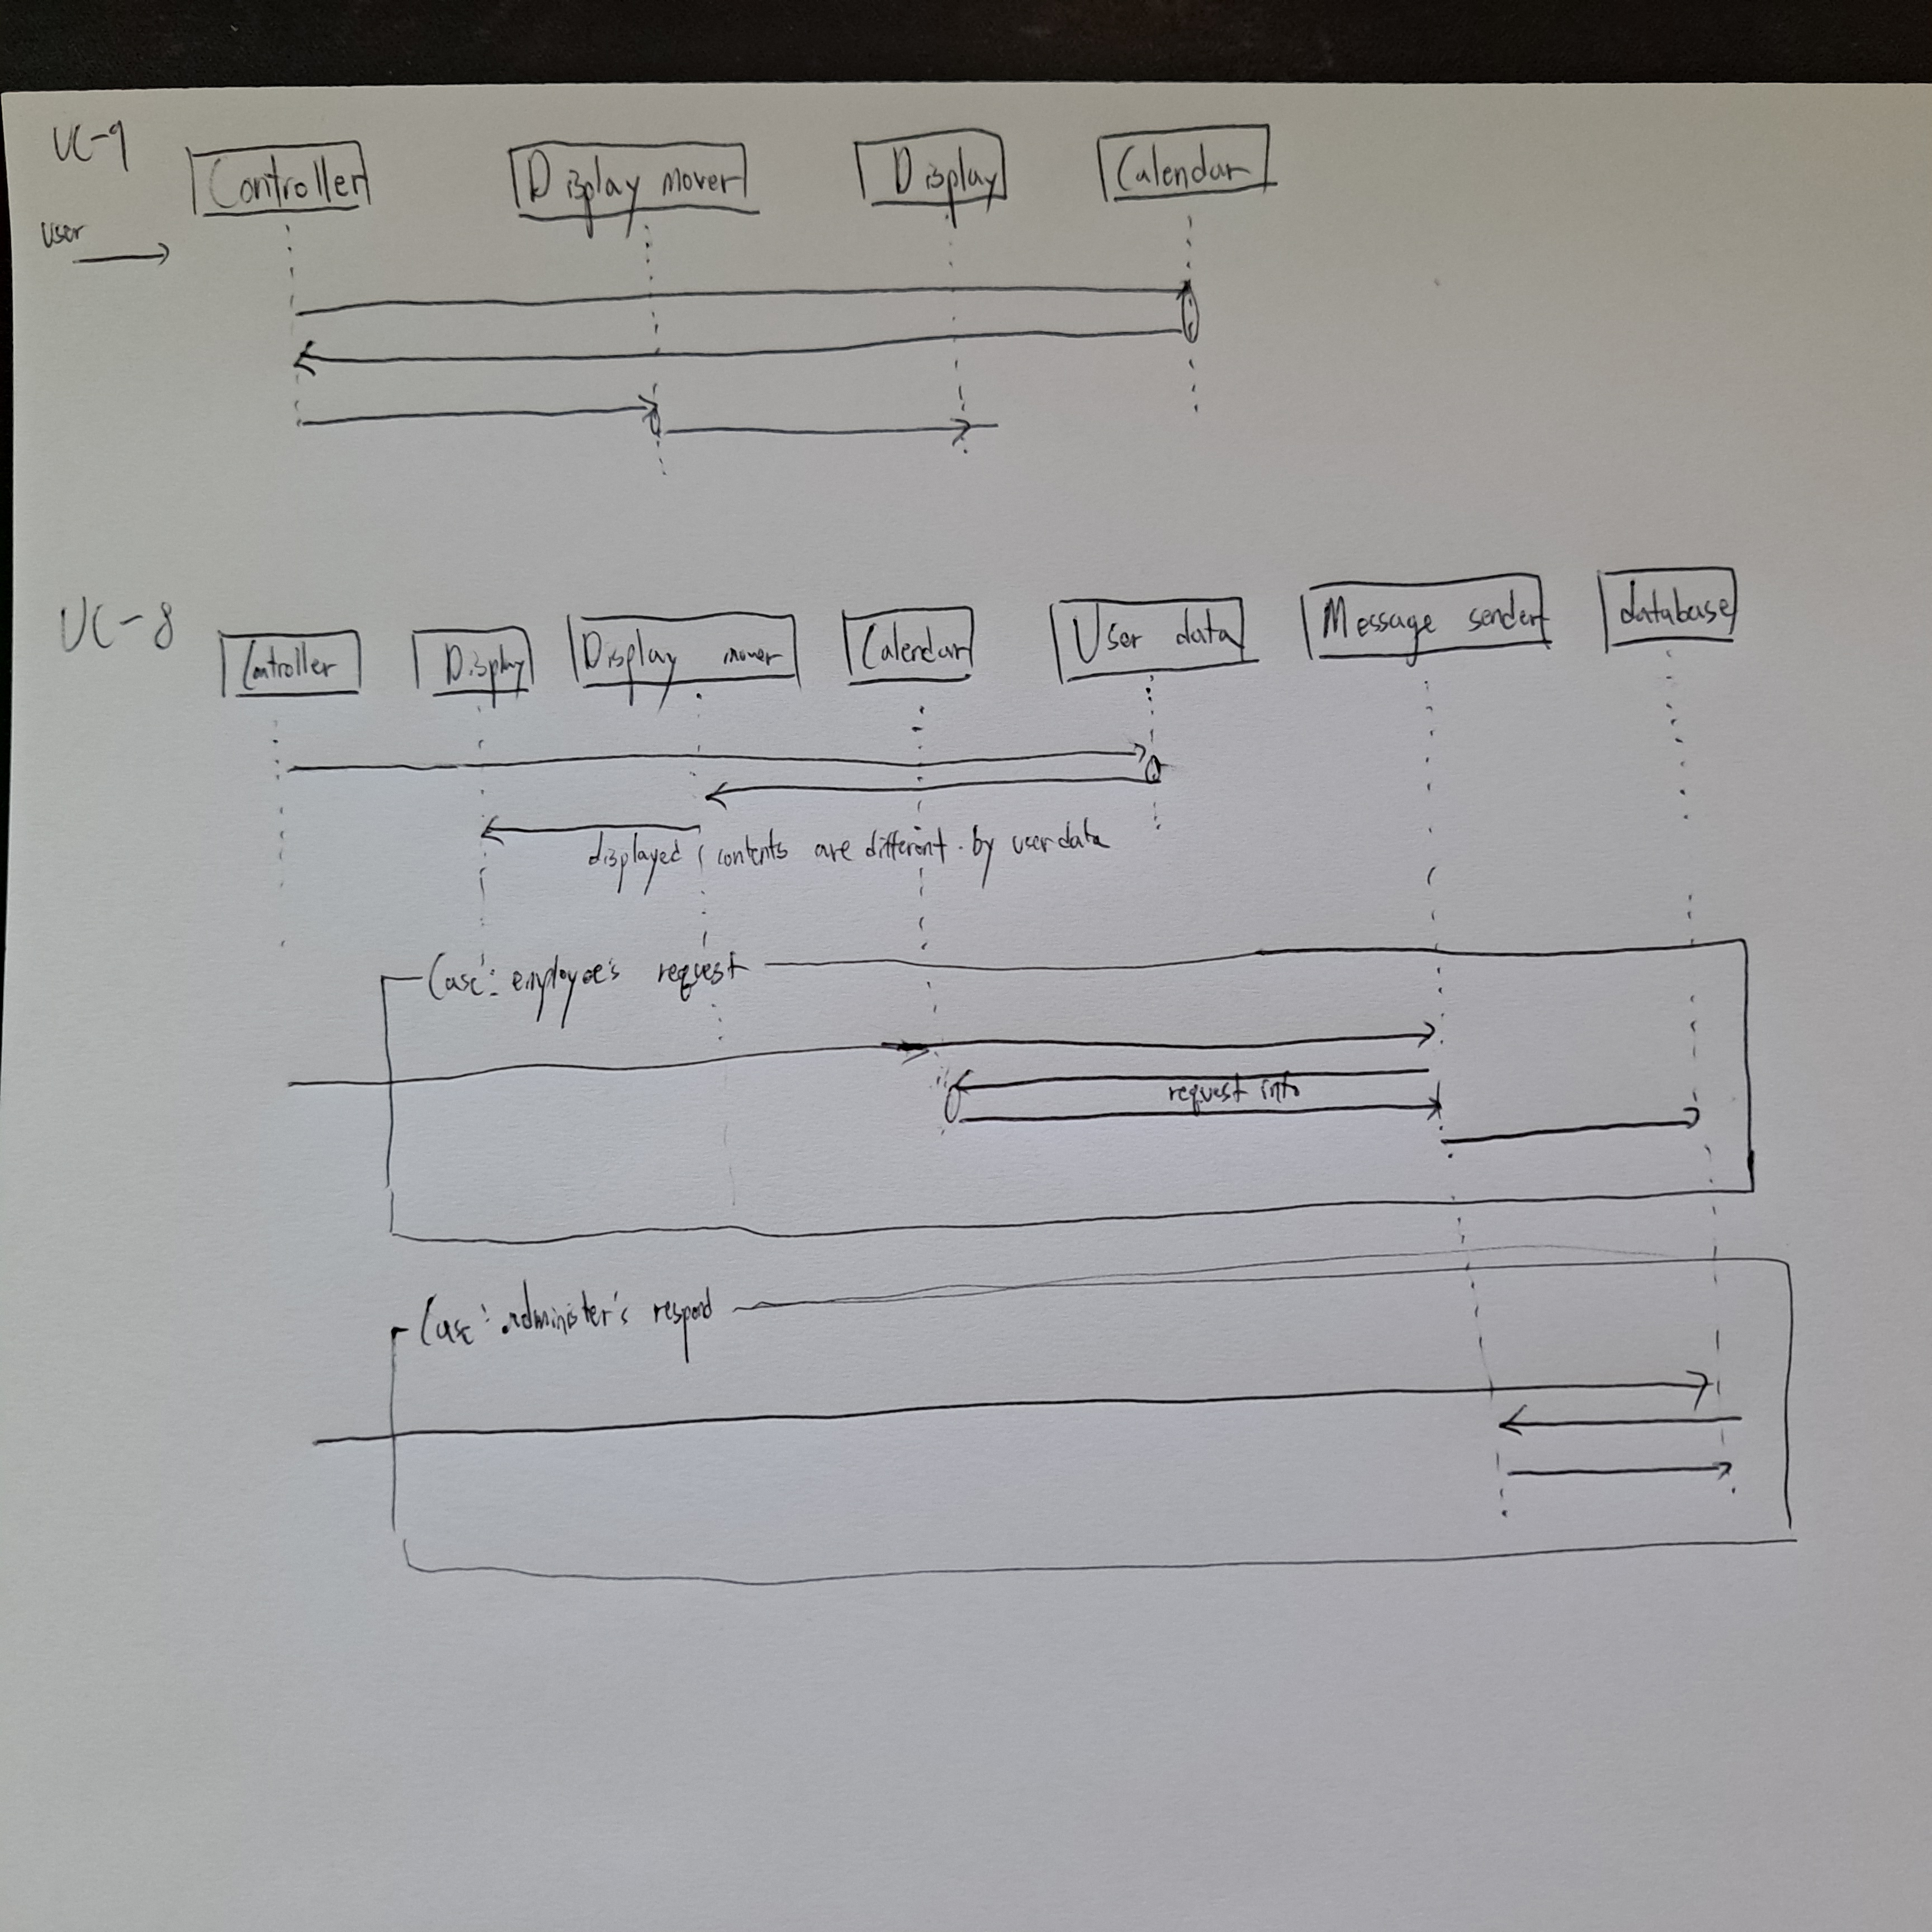 UC-9
user
Controller
Display mover
Display
Calendar
UC-8
Controller
Display
Display mover
Calendar
User data
Message sender
database
displayed contents are different by userdata
Case: employee's request
request info
Case: administer's respond